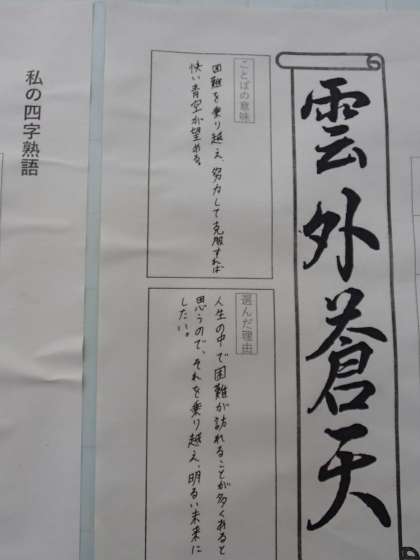 雲外蒼天
ことばの意味
困難を乗り越え、努力して克服すれば
快い青空が望める。
選んだ理由
人生の中で困難が訪れることが多くあると
思うので、それを乗り越え、明るい未来に
したい。
私の四字熟語